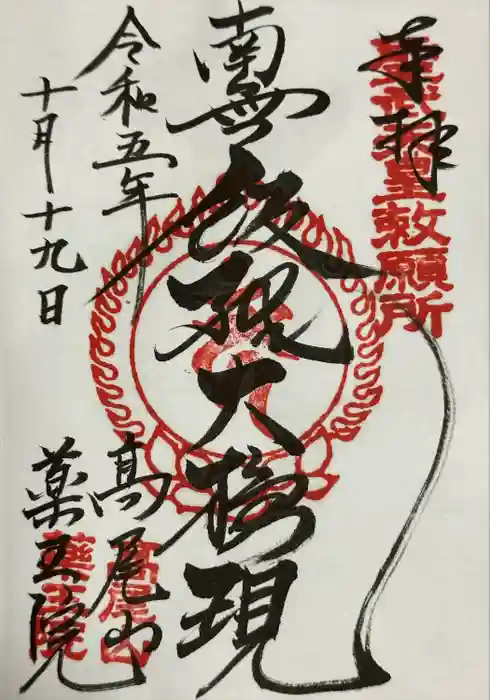 奉拝
聖武天皇勅願所
南無飯縄大権現
令和五年
十月十九日
高尾山
薬王院
高尾山
薬王院